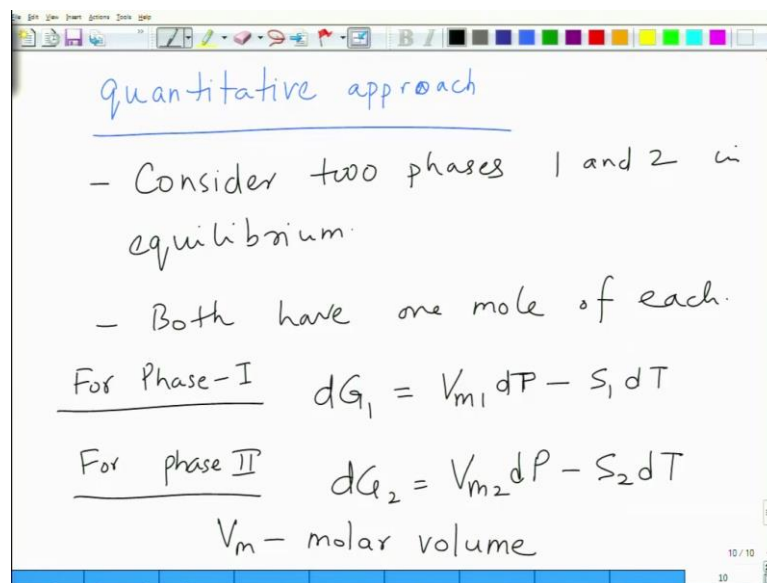 File Edit View Insert Actions Tools Help
B I
quantitative approach
- Consider two phases 1 and 2 in
equilibrium.
- Both have one mole of each.
For Phase-I dG₁ = Vm₁ dP - S₁ dT
For phase II dG₂ = Vm₂ dP - S₂ dT
Vm - molar volume
10 / 10
10